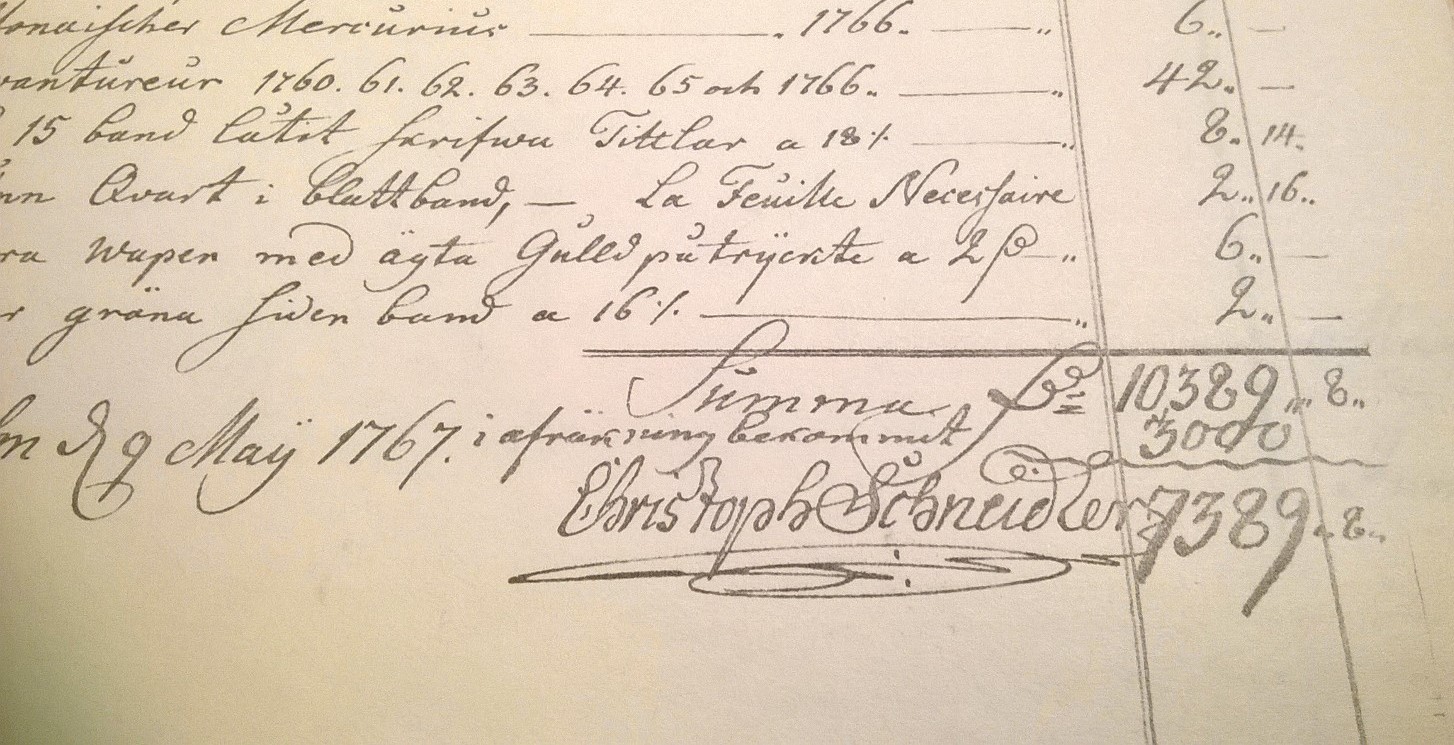 Mercurius 1766. 6.. —
1760. 61. 62. 63. 64. 65 och 1766.. 42.. —
15 band låtit skrifwa Tittlar a 18 ./. 8.. 14.
Qvart i blattband, — La Feuille Necessaire 2.. 16..
wapen med ägta Gulld påtrÿckte a 2 6.. —
gröna siden band a 16 ./. 2.. —
Summa 10389.. 8..
9 Maÿ 1767. i afräkning bekommit 3000
Christoph Schneidler 7389.. 8..